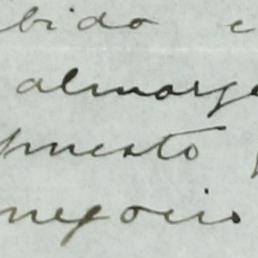 bido
almorge
puesto
negocio